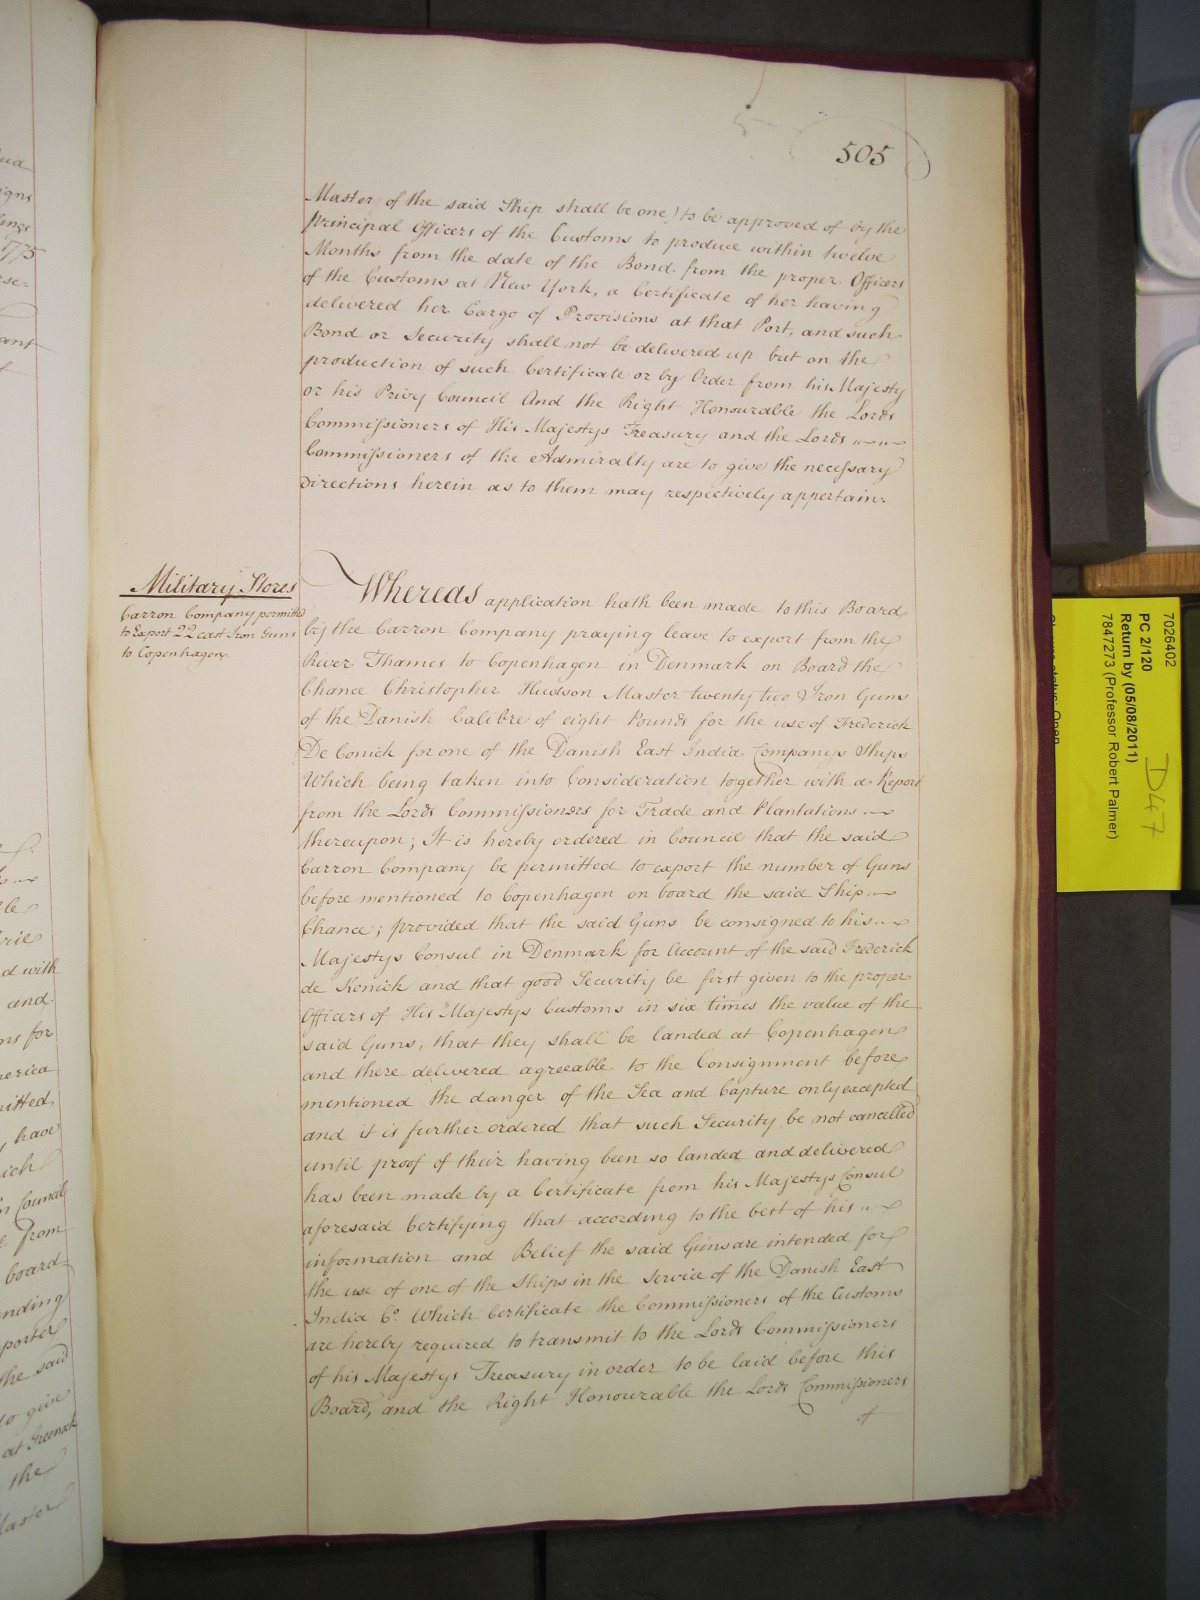 505
Master of the said Ship shall be one) to be approved of by the
Principal Officers of the Customs to produce within twelve
Months from the date of the Bond from the proper Officers
of the Customs at New York, a Certificate of her having
delivered her Cargo of Provisions at that Port, and such
Bond or Security shall not be delivered up but on the
production of such Certificate or by Order from his Majesty
or his Privy Council And the Right Honourable the Lords
Commissioners of His Majestys Treasury and the Lords
Commissioners of the Admiralty are to give the necessary
directions herein as to them may respectively appertain.
Military Stores
Carron Company permitted
to Export 22 cast Iron Guns
to Copenhagen
Whereas application hath been made to this Board
by the Carron Company praying leave to export from the
River Thames to Copenhagen in Denmark on Board the
Chance Christopher Hudson Master twenty two Iron Guns
of the Danish Calibre of eight Pounds for the use of Frederick
De Conick for one of the Danish East India Companys Ships
Which being taken into Consideration together with a Report
from the Lords Commissioners for Trade and Plantations
thereupon; It is hereby ordered in Council that the said
Carron Company be permitted to export the number of Guns
before mentioned to Copenhagen on board the said Ship
Chance; provided that the said Guns be consigned to his
Majestys Consul in Denmark for Account of the said Frederick
de Konick and that good Security be first given to the proper
Officers of His Majestys Customs in six times the value of the
said Guns, that they shall be landed at Copenhagen
and there delivered agreeable to the Consignment before
mentioned the danger of the Sea and Capture only excepted
and it is further ordered that such Security be not cancelled
until proof of their having been so landed and delivered
has been made by a Certificate from his Majestys Consul
aforesaid Certifying that according to the best of his
information and Belief the said Guns are intended for
the use of one of the Ships in the Service of the Danish East
India Co. Which Certificate the Commissioners of the Customs
are hereby required to transmit to the Lords Commissioners
of his Majestys Treasury in order to be laid before this
Board, and the Right Honourable the Lords Commissioners
of
7026402
PC 2/120
Return by (05/08/2011)
7847273 (Professor Robert Palmer)
D47
ua
igns
1775
rse=
ant
rie
d with
and
ns for
merica
mitted
have
ich
Council
from
board
nding
porter
the said
to give
at Greenock
the
Master